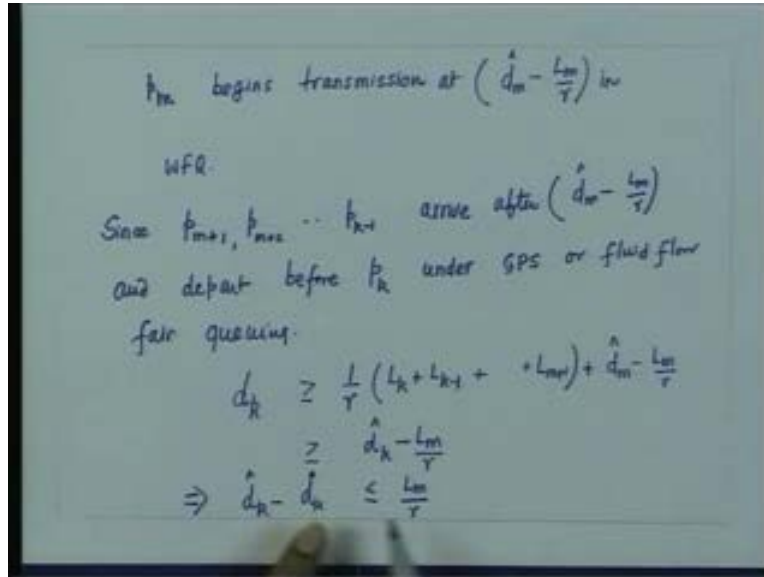 p_m begins transmission at ( d̂_m - L_m/r ) in
WFQ.
Since p_{m+1}, p_{m+2} .. p_{k-1} arrive after ( d̂_m - L_m/r )
and depart before p_k under GPS or fluid flow
fair queuing.
d_k ≥ 1/r ( L_k + L_{k-1} + + L_{m+1} ) + d̂_m - L_m/r
≥ d̂_k - L_m/r
⇒ d̂_k - d_k ≤ L_m/r